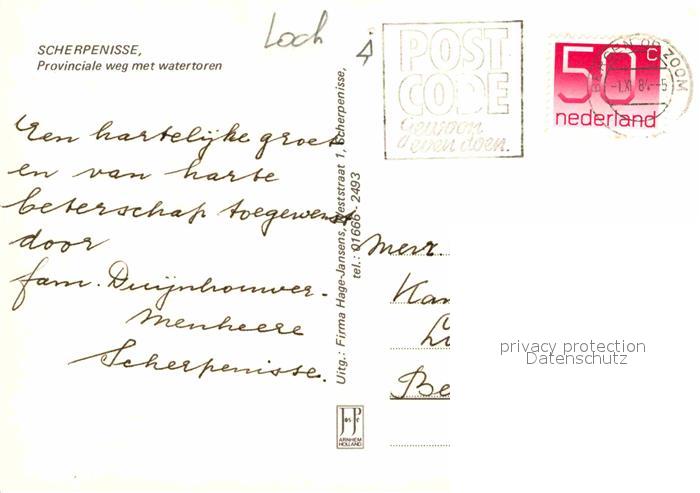 Loch
SCHERPENISSE,
Provinciale weg met watertoren
POST
CODE
Gewoon
even doen.
50 c
nederland
BERGEN OP ZOOM
-1.XI.84--5
Een hartelijke groet
en van harte
beterschap toegewenst
door
fam. Duijnhouwer-
Menheere
Scherpenisse.
Uitg.: Firma Hage-Jansens, Weststraat 1, Scherpenisse,
tel.: 01666 - 2493
JosPé
ARNHEM
HOLLAND
Mevr.
Kan
Li
Be
privacy protection
Datenschutz